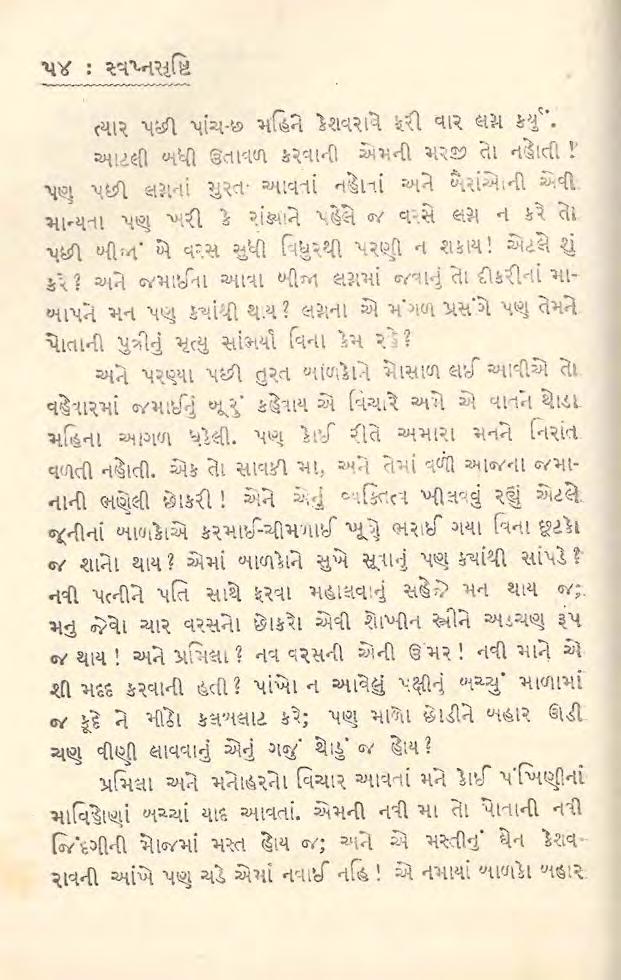 ૫૪ : સ્વપ્નસૃષ્ટિ
ત્યાર પછી પાંચ-છ મહિને કેશવરાવે ફરી વાર લગ્ન કર્યું.
આટલી બધી ઉતાવળ કરવાની એમની મરજી તો નહોતી !
પણ પછી લગ્નનાં મુરત આવતાં નહોતાં અને બૈરાંઓની એવી
માન્યતા પણ ખરી કે રાંડ્યાને પહેલે જ વરસે લગ્ન ન કરે તો
પછી બીજાં બે વરસ સુધી વિધુરથી પરણી ન શકાય! એટલે શું
કરે? અને જમાઈના આવા બીજા લગ્નમાં જવાનું તો દીકરીનાં મા-
બાપને મન પણ ક્યાંથી થાય? લગ્નના એ મંગળ પ્રસંગે પણ તેમને
પોતાની પુત્રીનું મૃત્યુ સાંભર્યા વિના કેમ રહે?
અને પરણ્યા પછી તુરત બાળકોને મોસાળ લઈ આવીએ તો
વહેવારમાં જમાઈનું બૂરું કહેવાય એ વિચારે અમે એ વાતને થોડા
મહિના આગળ ધકેલી. પણ કોઈ રીતે અમારા મનને નિરાંત
વળતી નહોતી. એક તો સાવકી મા, અને તેમાં વળી આજના જમા-
નાની ભણેલી છોકરી! એને એનું વ્યક્તિત્વ ખીલવવું રહ્યું એટલે
જૂનીનાં બાળકોએ કરમાઈ-ચીમળાઈ ખૂણે ભરાઈ ગયા વિના છૂટકો
જ શાનો થાય? એમાં બાળકોને સુખે સૂવાનું પણ ક્યાંથી સાંપડે?
નવી પત્નીને પતિ સાથે ફરવા મહાલવાનું સહેજે મન થાય જ;
મનુ જેવો ચાર વરસનો છોકરો એવી શોખીન સ્ત્રીને અડચણ રૂપ
જ થાય! અને પ્રમિલા? નવ વરસની એની ઉંમર! નવી માને એ
શી મદદ કરવાની હતી? પાંખો ન આવેલું પક્ષીનું બચ્ચું માળામાં
જ કૂદે ને મીઠો કલબલાટ કરે; પણ માળો છોડીને બહાર ઊડી
ચણ વીણી લાવવાનું એનું ગજું થોડું જ હોય?
પ્રમિલા અને મનોહરનો વિચાર આવતાં મને કોઈ પંખિણીનાં
માવિહોણાં બચ્ચાં યાદ આવતાં. એમની નવી મા તો પોતાની નવી
જિંદગીની મોજમાં મસ્ત હોય જ; અને એ મસ્તીનું ઘેન કેશવ-
રાવની આંખે પણ ચડે એમાં નવાઈ નહિ! એ નમાયાં બાળકો બહાર